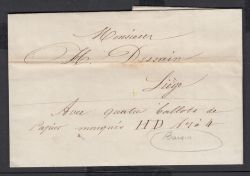 Monsieur
H. Dessain
Liège
Avec quatre ballots de
Papier marqués HD 1 à 4